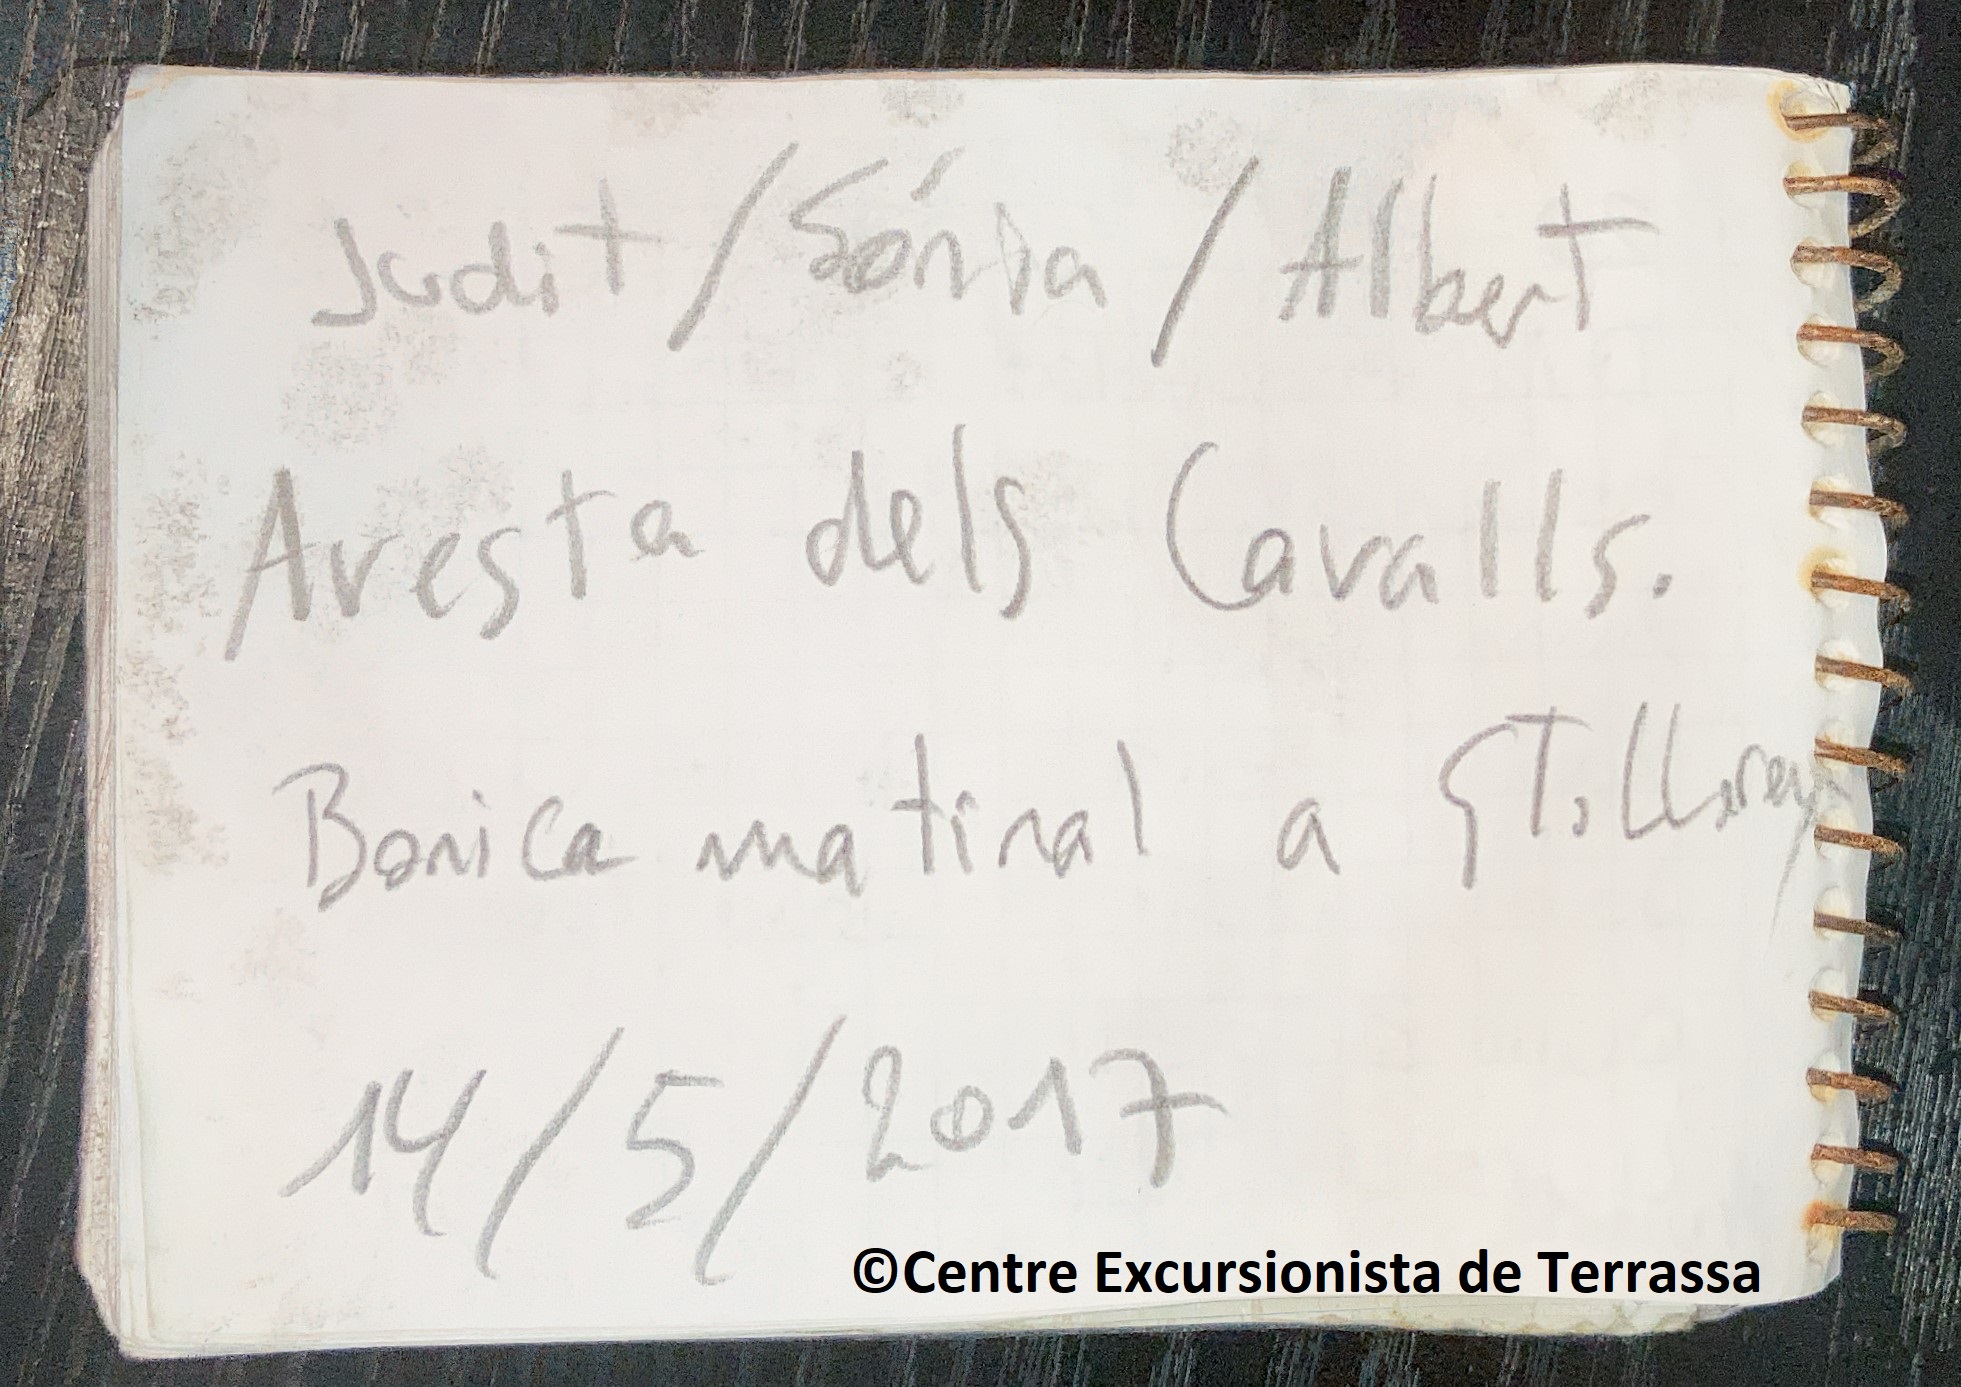 Judit / Sónia / Albert
Aresta dels Cavalls.
Bonica matinal a St. Llorenç
14/5/2017
©Centre Excursionista de Terrassa